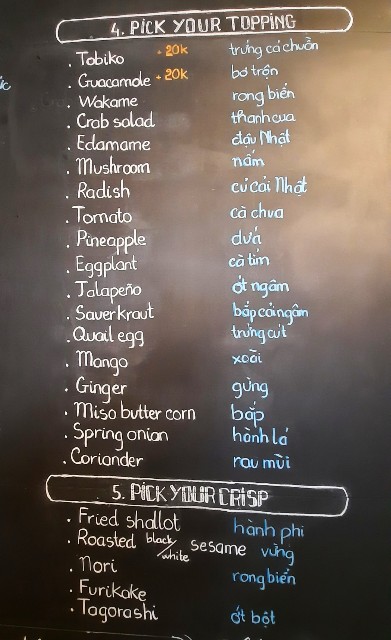 4. PICK YOUR TOPPING
. Tobiko + 20k trứng cá chuồn
. Guacamole + 20k bơ trộn
. Wakame rong biển
. Crab salad thanh cua
. Edamame đậu Nhật
. Mushroom nấm
. Radish củ cải Nhật
. Tomato cà chua
. Pineapple dứa
. Eggplant cà tím
. Jalapeño ớt ngâm
. Sauerkraut bắp cải ngâm
. Quail egg trứng cút
. Mango xoài
. Ginger gừng
. Miso butter corn bắp
. Spring onion hành lá
. Coriander rau mùi
5. PICK YOUR CRISP
. Fried shallot hành phi
. Roasted black/white sesame vừng
. Nori rong biển
. Furikake
. Togorashi ớt bột